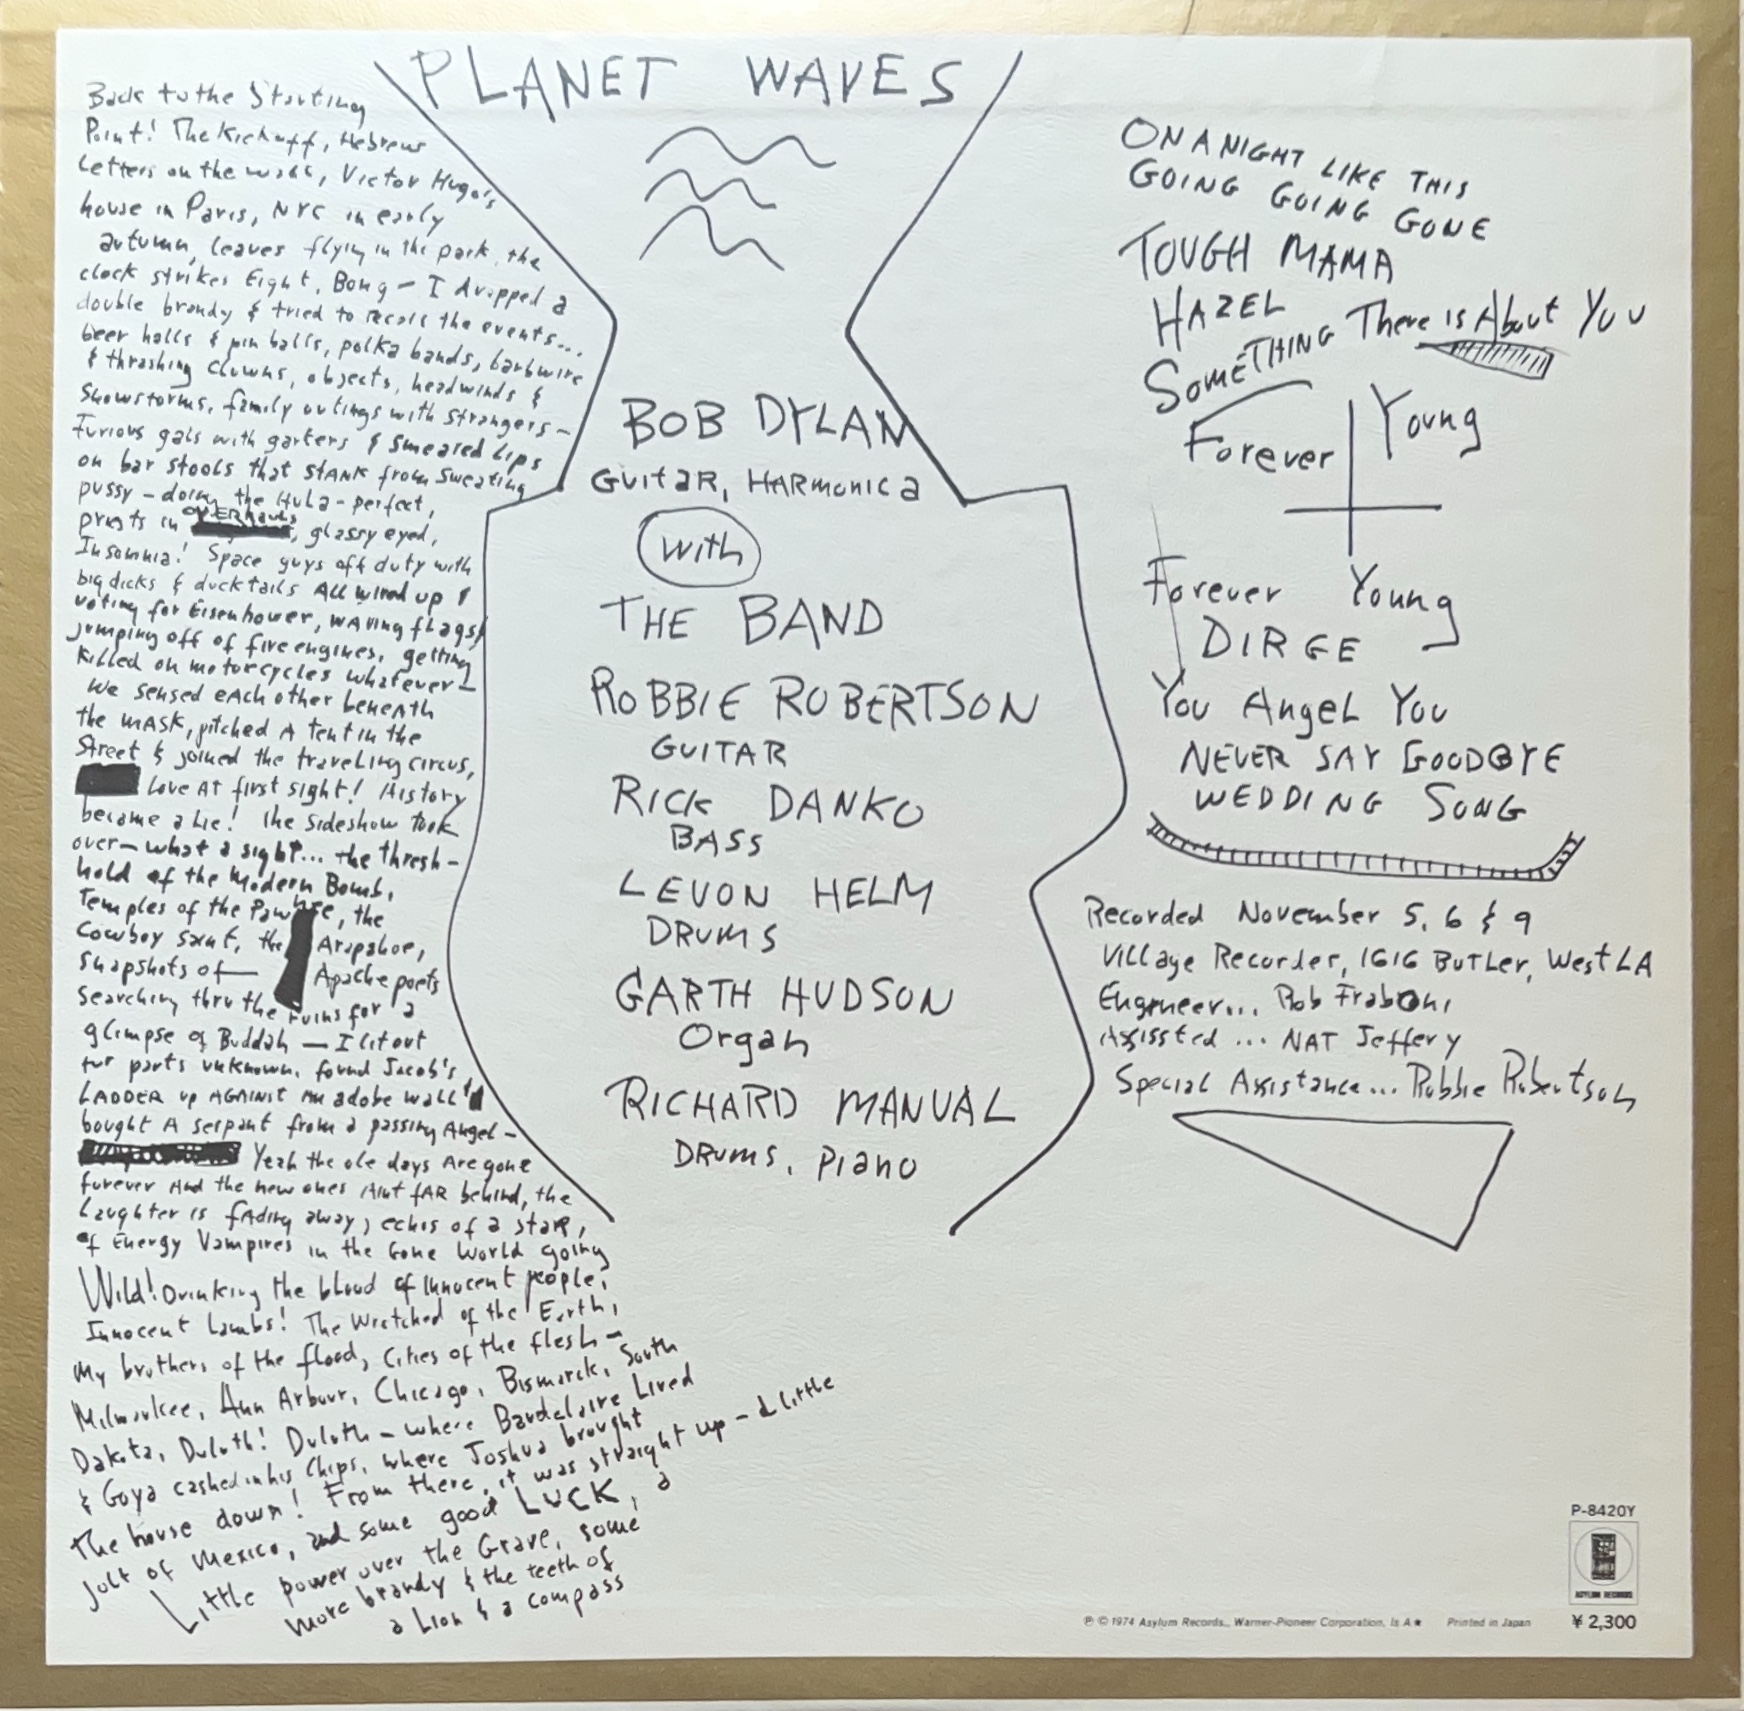 PLANET WAVES
Back to the Starting
Point! The Kickoff, Hebrew
Letters on the walls, Victor Hugo's
house in Paris, NYC in early
autumn, leaves flying in the park, the
clock strikes Eight, Bong — I dropped a
double brandy & tried to recall the events...
beer halls & pin balls, polka bands, barbwire
& thrashing clowns, objects, headwinds &
Snowstorms, family outings with strangers —
Furious gals with garters & smeared Lips
on bar stools that stANK from sweating
pussy — doing the Hula — perfect,
priests in OVERhauls, glassy eyed,
Insomnia! Space guys off duty with
big dicks & duck tails All wired up &
voting for Eisenhower, waving flags &
jumping off of fire engines, getting
killed on motorcycles whatever —
We sensed each other beneath
the MASK, pitched A tent in the
Street & joined the traveling circus,
Love At first sight! History
became a Lie! the sideshow took
over — what a sight... the thresh-
hold of the Modern Bomb,
Temples of the Pawnee, the
Cowboy saint, the Arapahoe,
snapshots of — Apache poets
searching thru the ruins for a
glimpse of Buddah — I lit out
for parts unknown, found Jacob's
LADDER up AGAINST An adobe wall &
bought A serpant from a passing Angel —
Yeah the ole days Are gone
forever And the new ones Aint fAR behind, the
Laughter is fAding away, echos of a staR,
of Energy Vampires in the Gone World going
Wild! Drinking the blood of Innocent people,
Innocent Lambs! The Wretched of the Earth,
My brothers of the flood, Cities of the flesh —
Milwaukee, Ann Arbour, Chicago, Bismarck, South
Dakota, Duluth! Duluth — where Baudelaire Lived
& Goya cashed in his Chips, where Joshua brought
The house down! From there, it was straight up — a little
jolt of Mexico, and some good LUCK, a
Little power over the Grave, some
more brandy & the teeth of
a Lion & a compass
BOB DYLAN
Guitar, HARmonica
with
THE BAND
ROBBIE ROBERTSON
GUITAR
RICK DANKO
BASS
LEVON HELM
DRUMS
GARTH HUDSON
Organ
RICHARD MANUAL
DRUMS, Piano
ON A NIGHT LIKE THIS
GOING GOING GONE
TOUGH MAMA
HAZEL
SOMETHING There is About You
Forever Young
Forever Young
DIRGE
You Angel You
NEVER SAY GOODBYE
WEDDING SONG
Recorded November 5, 6 & 9
Village Recorder, 1616 Butler, West LA
Engineer... Rob Fraboni
Assissted ... NAT Jeffery
Special Assistance... Robbie Robertson
P-8420Y
ASYLUM RECORDS
Ⓟ © 1974 Asylum Records., Warner-Pioneer Corporation, Is A★ Printed in Japan
¥ 2,300